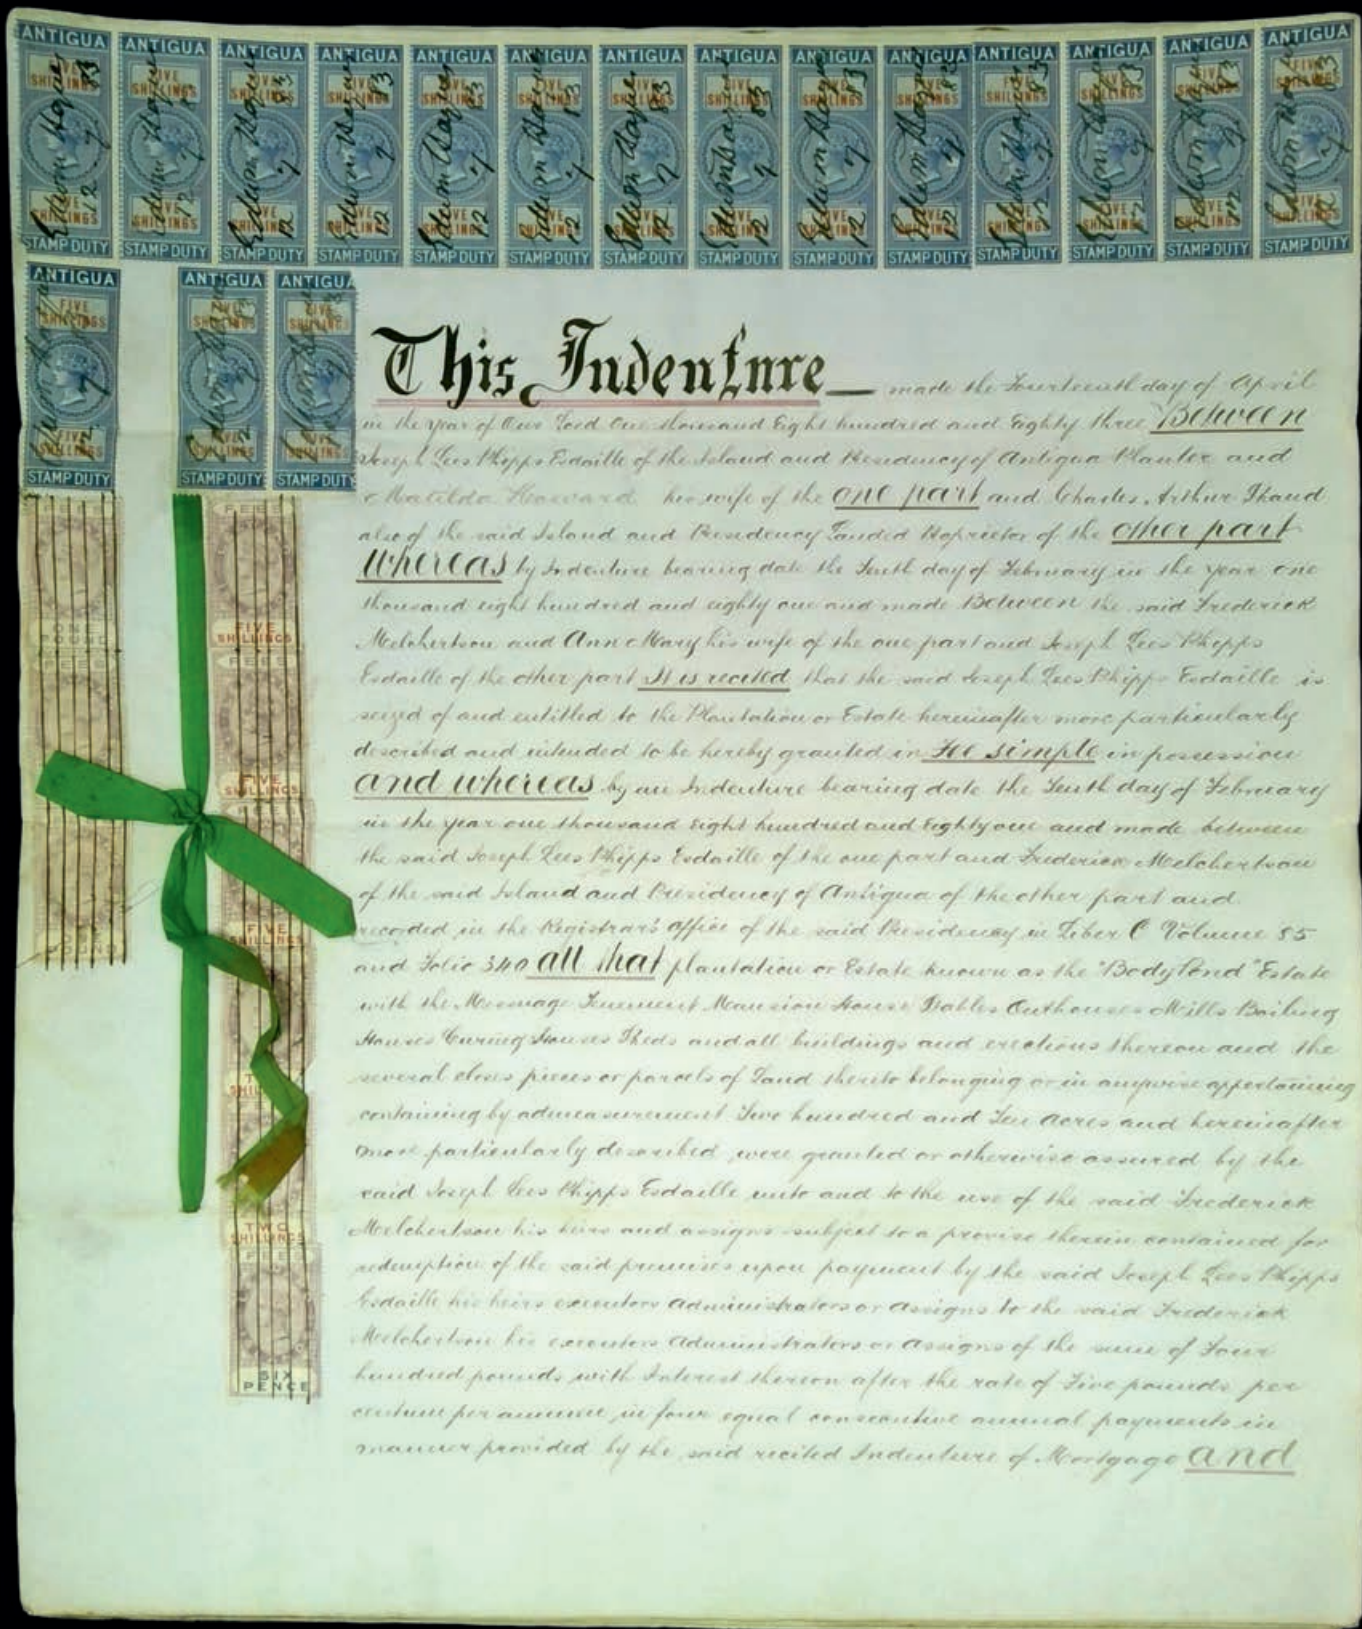 ANTIGUA ANTIGUA ANTIGUA ANTIGUA ANTIGUA ANTIGUA ANTIGUA ANTIGUA ANTIGUA ANTIGUA ANTIGUA ANTIGUA ANTIGUA ANTIGUA
FIVE SHILLINGS FIVE SHILLINGS FIVE SHILLINGS FIVE SHILLINGS FIVE SHILLINGS FIVE SHILLINGS FIVE SHILLINGS FIVE SHILLINGS FIVE SHILLINGS FIVE SHILLINGS FIVE SHILLINGS FIVE SHILLINGS FIVE SHILLINGS FIVE SHILLINGS
FIVE SHILLINGS FIVE SHILLINGS FIVE SHILLINGS FIVE SHILLINGS FIVE SHILLINGS FIVE SHILLINGS FIVE SHILLINGS FIVE SHILLINGS FIVE SHILLINGS FIVE SHILLINGS FIVE SHILLINGS FIVE SHILLINGS FIVE SHILLINGS FIVE SHILLINGS
STAMP DUTY STAMP DUTY STAMP DUTY STAMP DUTY STAMP DUTY STAMP DUTY STAMP DUTY STAMP DUTY STAMP DUTY STAMP DUTY STAMP DUTY STAMP DUTY STAMP DUTY STAMP DUTY
ANTIGUA ANTIGUA ANTIGUA
FIVE SHILLINGS FIVE SHILLINGS FIVE SHILLINGS
FIVE SHILLINGS FIVE SHILLINGS FIVE SHILLINGS
STAMP DUTY STAMP DUTY STAMP DUTY
This Indenture made the Fourteenth day of April
in the year of Our Lord One thousand Eight hundred and Eighty three Between
Joseph Lees Phipps Esdaille of the Island and Presidency of Antigua Planter and
Matilda Howard his wife of the one part and Charles Arthur
also of the said Island and Presidency Landed Proprietor of the other part
Whereas by Indenture bearing date the Tenth day of February in the year one
thousand eight hundred and eighty one and made Between the said Frederick
Melchertson and Ann Mary his wife of the one part and Joseph Lees Phipps
Esdaille of the other part It is recited that the said Joseph Lees Phipps Esdaille is
seized of and entitled to the Plantation or Estate hereinafter more particularly
described and intended to be hereby granted in Fee simple in possession
and whereas by an Indenture bearing date the Tenth day of February
in the year one thousand Eight hundred and Eighty one and made between
the said Joseph Lees Phipps Esdaille of the one part and Frederick Melchertson
of the said Island and Presidency of Antigua of the other part and
recorded in the Registrar's Office of the said Presidency in Liber C Volume 85
and Folio 340 all that plantation or Estate known as the "Body Pond" Estate
with the Messuage Tenement Mansion House Stables Outhouses Mills Boiling
Houses Curing Houses Sheds and all buildings and erections thereon and the
several closes pieces or parcels of Land thereto belonging or in anywise appertaining
containing by admeasurement Two hundred and Ten Acres and hereinafter
more particularly described were granted or otherwise assured by the
said Joseph Lees Phipps Esdaille unto and to the use of the said Frederick
Melchertson his heirs and assigns subject to a proviso therein contained for
redemption of the said premises upon payment by the said Joseph Lees Phipps
Esdaille his heirs executors Administrators or Assigns to the said Frederick
Melchertson his executors Administrators or Assigns of the sum of Four
hundred pounds with Interest thereon after the rate of Five pounds per
centum per annum in four equal consecutive annual payments in
manner provided by the said recited Indenture of Mortgage and
FEES
ONE POUND
FEES
FEES
FIVE SHILLINGS
FEES
FIVE SHILLINGS
FIVE SHILLINGS
TWO SHILLINGS
FEES
SIX PENCE